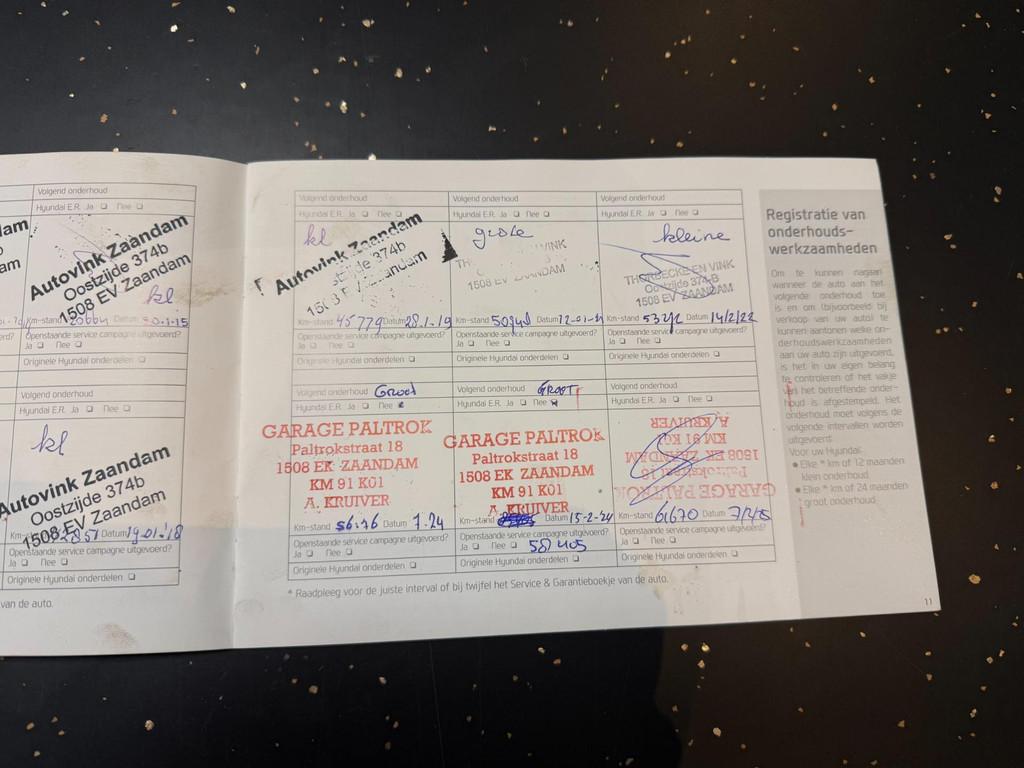 Volgend onderhoud
Hyundai E.R. Ja ❏ Nee ❏
Autovink Zaandam
Oostzijde 374b
1508 EV Zaandam
kl
Km-stand Datum
Openstaande service campagne uitgevoerd?
Ja ❏ Nee ❏
Originele Hyundai onderdelen ❏
Volgend onderhoud
Hyundai E.R. Ja ❏ Nee ❏
kl
Autovink Zaandam
Oostzijde 374b
1508 EV Zaandam
Datum 19-01-'18
Openstaande service campagne uitgevoerd?
Ja ❏ Nee ❏
Originele Hyundai onderdelen ❏
van de auto.
Volgend onderhoud
Hyundai E.R. Ja ❏ Nee ❏
kl
Autovink Zaandam
374b
Zaandam
Km-stand 45779 Datum 28.1.19
Openstaande service campagne uitgevoerd?
Ja ❏ Nee ❏
Originele Hyundai onderdelen ❏
Volgend onderhoud
Hyundai E.R. Ja ❏ Nee ❏
grote
VINK
1508 EV ZAANDAM
Km-stand Datum
Openstaande service campagne uitgevoerd?
Ja ❏ Nee ❏
Originele Hyundai onderdelen ❏
Volgend onderhoud
Hyundai E.R. Ja ❏ Nee ❏
kleine
THORBECKE EN VINK
Oostzijde 374-B
1508 EV ZAANDAM
Km-stand Datum 14/2/22
Openstaande service campagne uitgevoerd?
Ja ❏ Nee ❏
Originele Hyundai onderdelen ❏
Volgend onderhoud Groot
Hyundai E.R. Ja ❏ Nee
GARAGE PALTROK
Paltrokstraat 18
1508 EK ZAANDAM
KM 91 K01
A. KRUIVER
Km-stand Datum 7.24
Openstaande service campagne uitgevoerd?
Ja ❏ Nee ❏
Originele Hyundai onderdelen ❏
Volgend onderhoud GROOT
Hyundai E.R. Ja ❏ Nee
GARAGE PALTROK
Paltrokstraat 18
1508 EK ZAANDAM
KM 91 K01
A. KRUIVER
Km-stand Datum 15-2-24
Openstaande service campagne uitgevoerd?
Ja ❏ Nee ❏
Originele Hyundai onderdelen ❏
Volgend onderhoud
Hyundai E.R. Ja ❏ Nee ❏
GARAGE PALTROK
Paltrokstraat 18
1508 EK ZAANDAM
KM 91 K01
A. KRUIVER
Km-stand 61670 Datum
Openstaande service campagne uitgevoerd?
Ja ❏ Nee ❏
Originele Hyundai onderdelen ❏
* Raadpleeg voor de juiste interval of bij twijfel het Service & Garantieboekje van de auto.
Registratie van
onderhouds-
werkzaamheden
Om te kunnen nagaan
wanneer de auto aan het
volgende onderhoud toe
is en om (bijvoorbeeld bij
verkoop van uw auto) te
kunnen aantonen welke on-
derhoudswerkzaamheden
aan uw auto zijn uitgevoerd,
is het in uw eigen belang
te controleren of het vakje
van het betreffende onder-
houd is afgestempeld. Het
onderhoud moet volgens de
volgende intervallen worden
uitgevoerd:
Voor uw Hyundai:
● Elke * km of 12 maanden
klein onderhoud.
● Elke * km of 24 maanden
groot onderhoud.
11